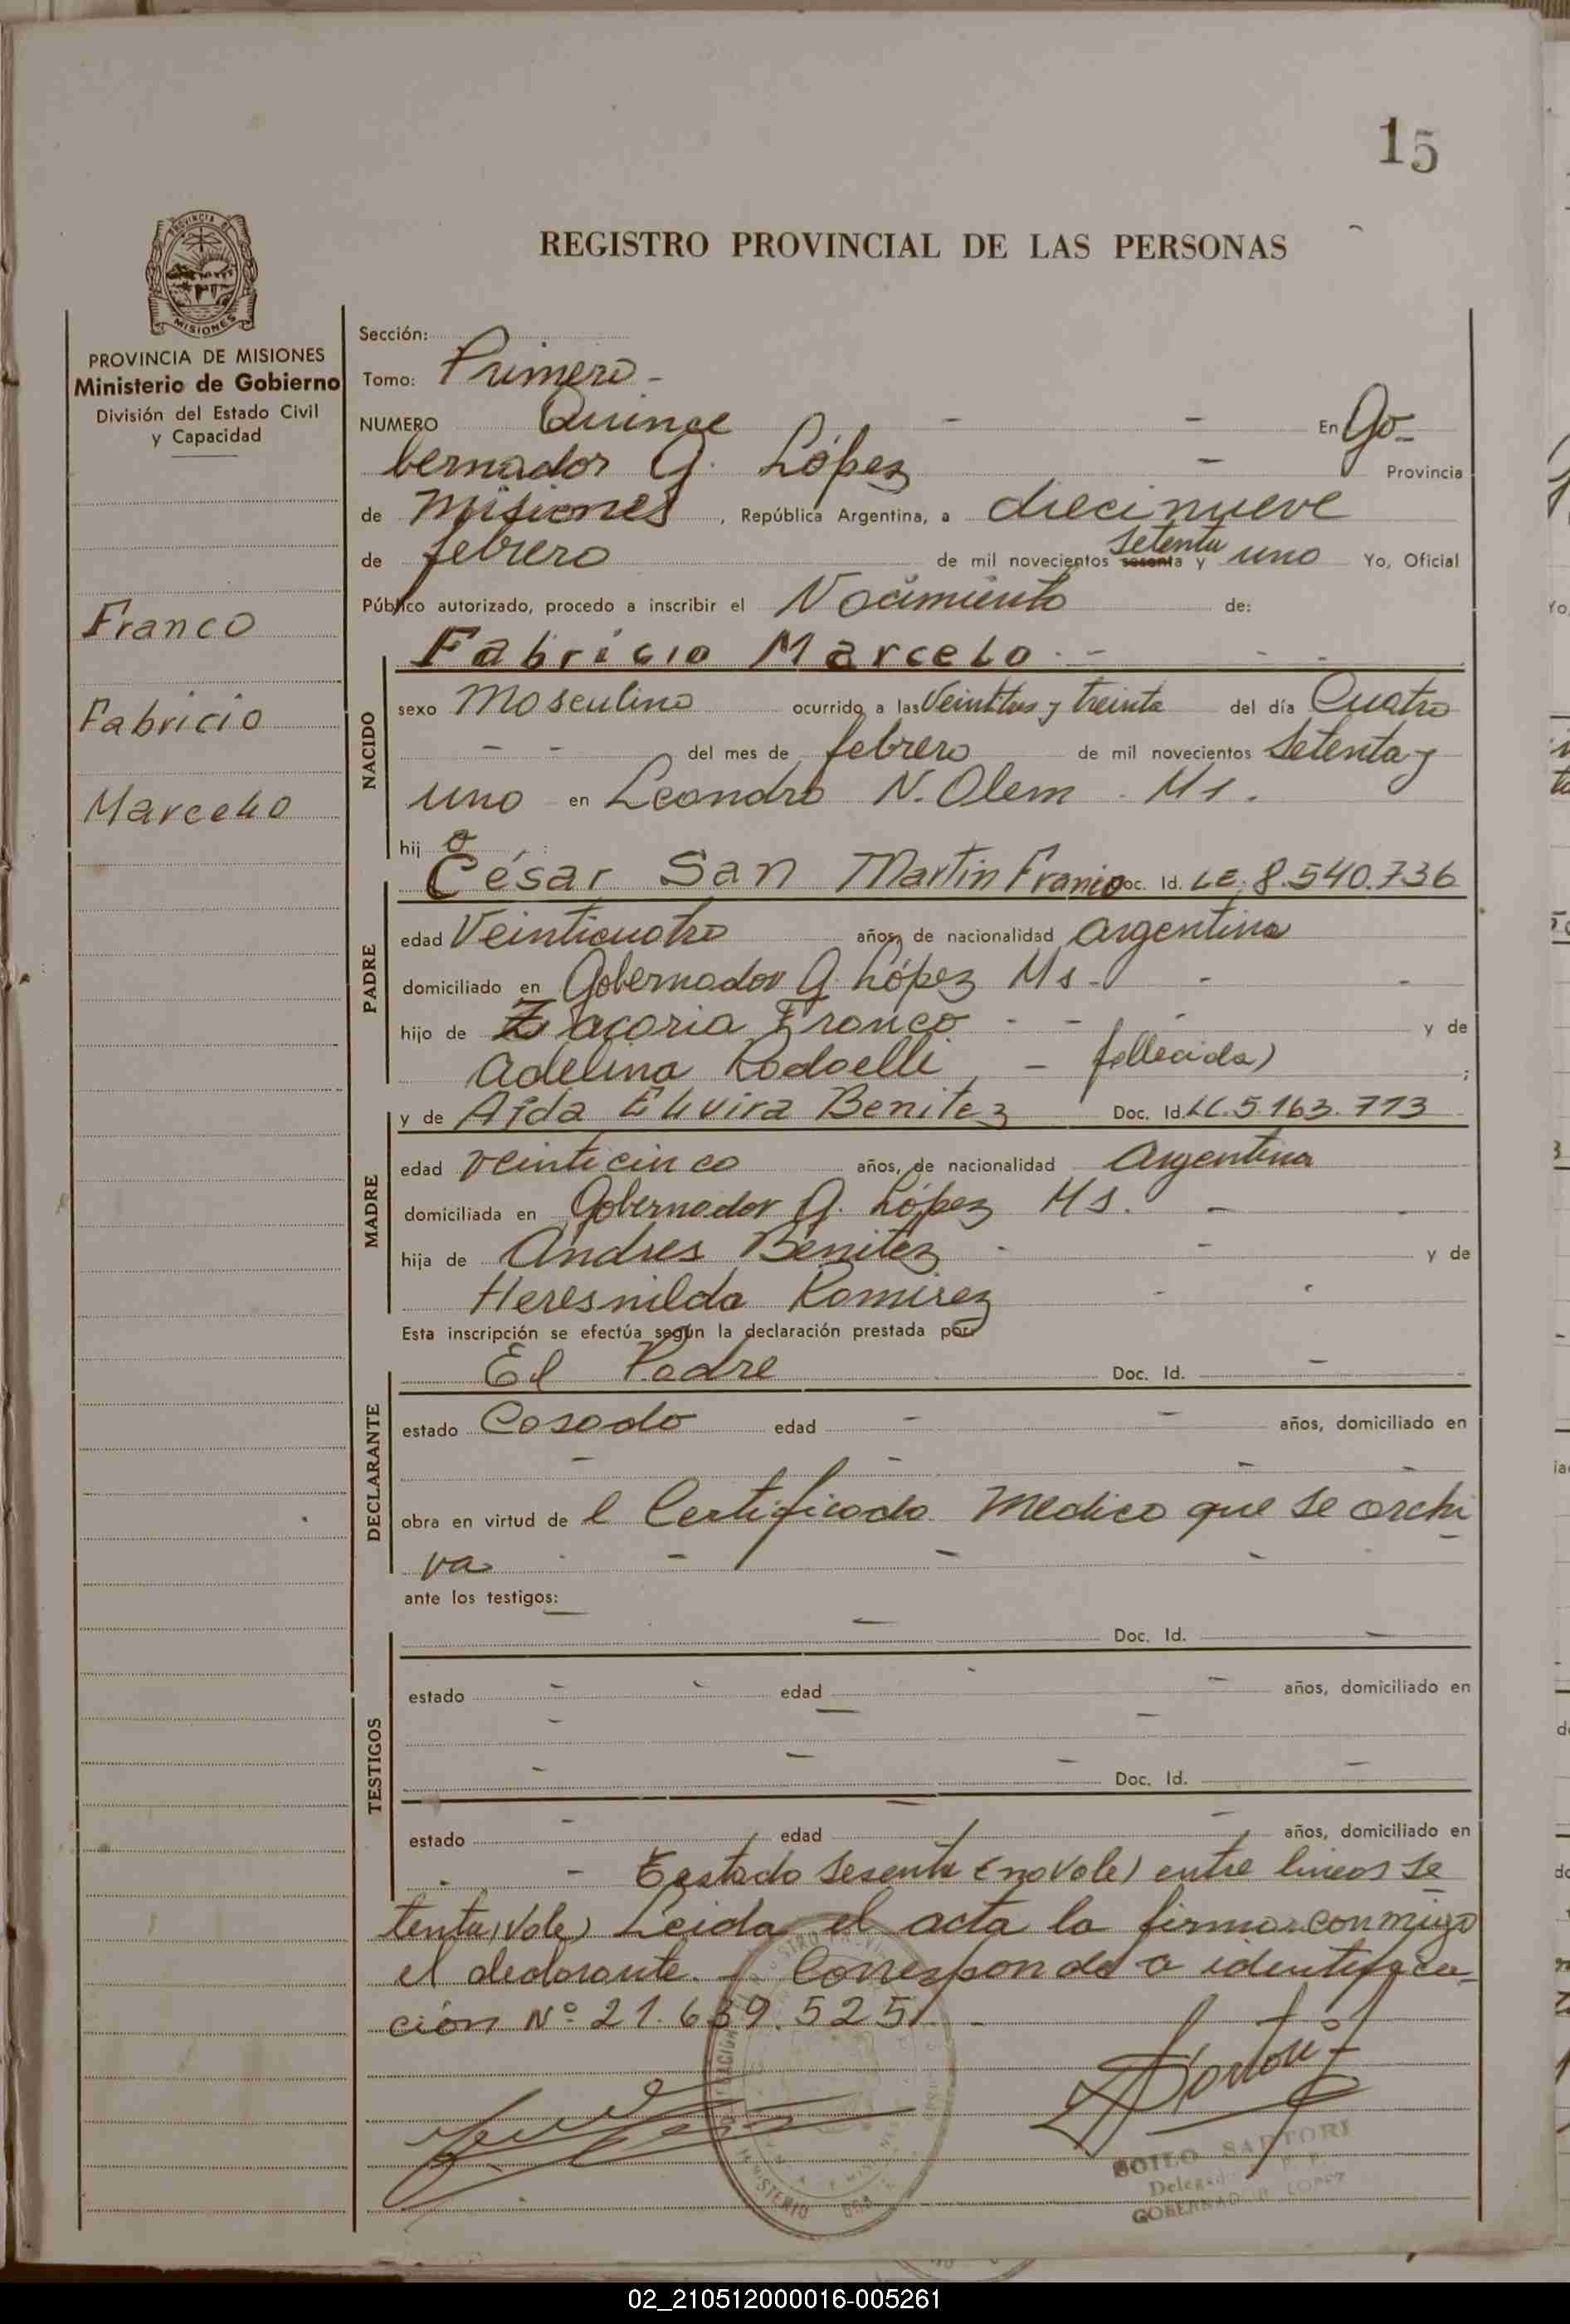 15
REGISTRO PROVINCIAL DE LAS PERSONAS
PROVINCIA DE MISIONES
Ministerio de Gobierno
División del Estado Civil
y Capacidad
Franco
Fabricio
Marcelo
Sección:
Tomo: Primero -
NUMERO Quince - - En Go-
bernador G. López - Provincia
de Misiones, República Argentina, a diecinueve
de febrero de mil novecientos sesenta setenta y uno Yo, Oficial
Público autorizado, procedo a inscribir el Nacimiento de:
Fabricio Marcelo - - - -
NACIDO
sexo Masculino ocurrido a las Veintitres y treinta del día Cuatro
- - del mes de febrero de mil novecientos Setenta y
uno en Leandro N. Alem - Ms.
hijo :
PADRE
César San Martin Franco Doc. Id. LE. 8.540.736
edad Veinticuatro años, de nacionalidad Argentina
domiciliado en Gobernador G. López Ms - - -
hijo de Zacaria Franco - - - y de
Adelina Rodaelli - fallecida) ;
MADRE
y de Aída Elvira Benitez Doc. Id. LC. 5.163.773
edad veinticinco años, de nacionalidad Argentina
domiciliada en Gobernador G. López Ms. - -
hija de Andres Benitez - - y de
Heresnilda Ramirez - -
Esta inscripción se efectúa según la declaración prestada por:
DECLARANTE
El Padre Doc. Id. -
estado Casado edad - - años, domiciliado en
- - - -
obra en virtud de l Certificado Medico que se archi
va - - - -
ante los testigos:
TESTIGOS
- Doc. Id. -
estado - - edad - - años, domiciliado en
- -
- - - Doc. Id. -
estado - edad - - años, domiciliado en
- Testado sesenta (no vale) entre lineas se
tenta (vale) Leida el acta la firma conmigo
el declarante. - Corresponde a identifica-
ción Nº 21.639.525 -
SOILO SARTORI
GOBERNADOR LOPEZ
02_210512000016-005261